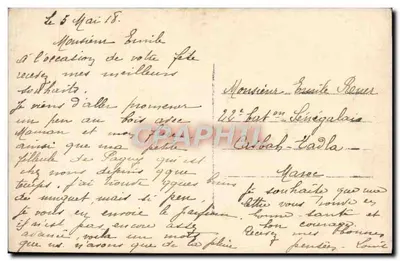 Le 5 Mai 18.
Monsieur Emile
A l'occasion de votre fête
recevez mes meilleurs
souhaits.
Je viens d'aller promener
un peu au bois avec
Maman et mon
ainsi que ma petite
filleule de Pagny qui est
chez nous depuis qque
temps. j'ai trouvé qques brins
de muguet, mais si peu.
Je vous en envoie le parfum.
il n'est pas encore assez
avancé, voilà un mois
que ns n'avons que de la pluie
Monsieur Emile
22e Bat on Sénégalais
Casbah-Tadla
Maroc
Je souhaite que ma
lettre vous trouve en
bonne santé et
bon courage.
Recevez mes bonnes
pensées. Louise
CPARAMA